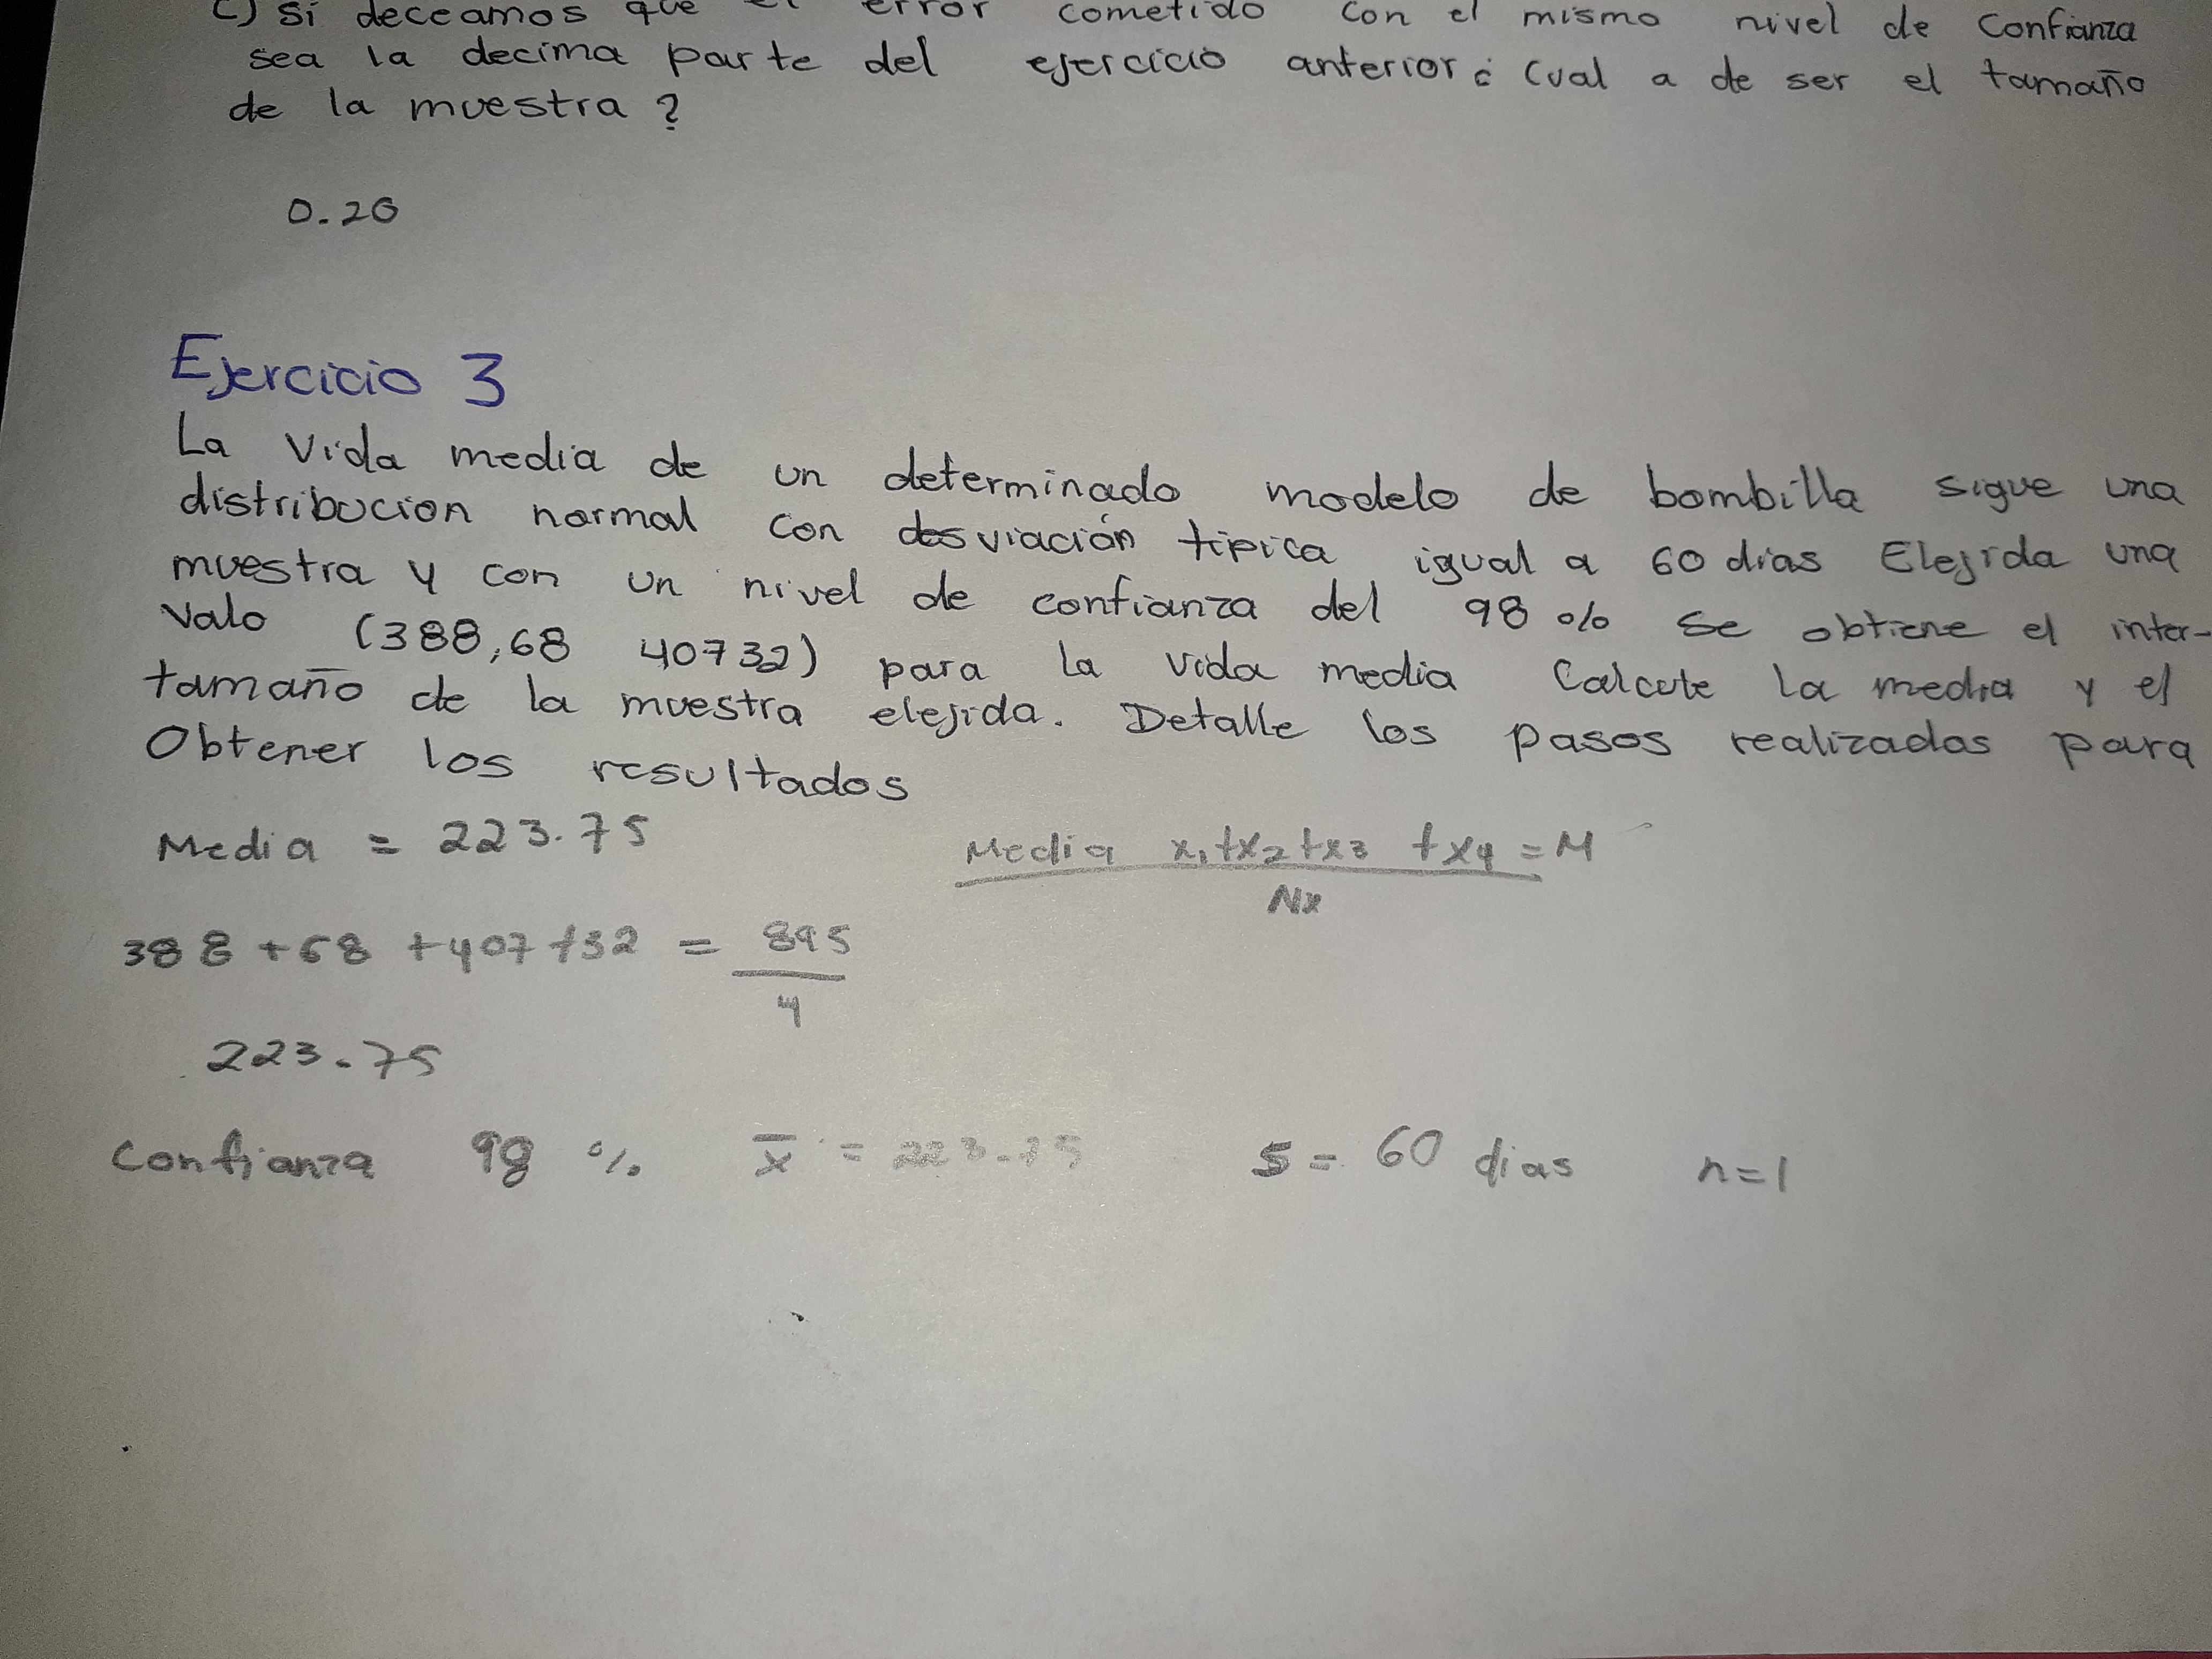 C) Si deceamos que el error cometido con el mismo nivel de Confianza
sea la decima parte del ejercicio anterior ¿ Cual a de ser el tamaño
de la muestra ?
0.20
Ejercicio 3
La Vida media de un determinado modelo de bombilla sigue una
distribucion normal con desviación tipica igual a 60 dias Elejida una
muestra y con un nivel de confianza del 98 % se obtiene el inter-
valo (388,68 40732) para la vida media Calcute la media y el
tamaño de la muestra elejida. Detalle los pasos realizados para
Obtener los resultados
Media = 223.75
Media x1+x2+x3 +x4 = M
Nx
388 +68 +407+32 = 895
4
223.75
Confianza 98 % x̄ = 223.75 S = 60 dias n=1